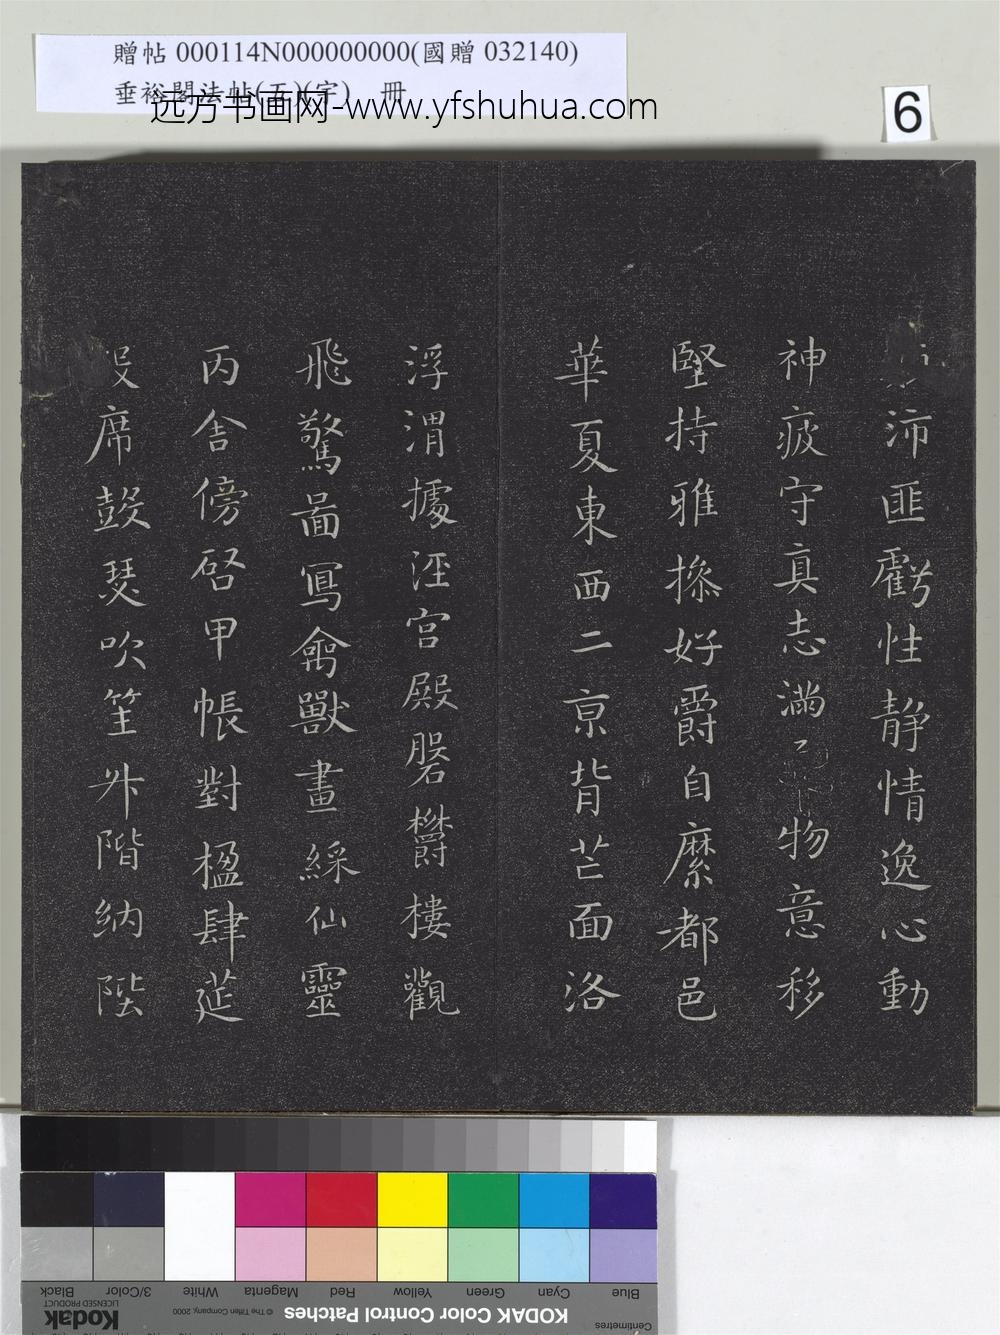 贈帖 000114N000000000(國贈 032140)
垂裕閣法帖(五)(字) 冊
远方书画网-www.yfshuhua.com
6
沛匪虧性静情逸心動
神疲守真志滿物意移
堅持雅操好爵自縻都邑
華夏東西二京背芒面洛
浮渭據涇宮殿磐欝樓觀
飛驚啚寫禽獸畫綵仙靈
丙舍傍啓甲帳對楹肆莚
設席鼓瑟吹笙升階納陛
Blue Cyan Green Yellow Red Magenta White 3/Color Black
Centimetres
KODAK Color Control Patches
© The Tiffen Company, 2000
Kodak
LICENSED PRODUCT